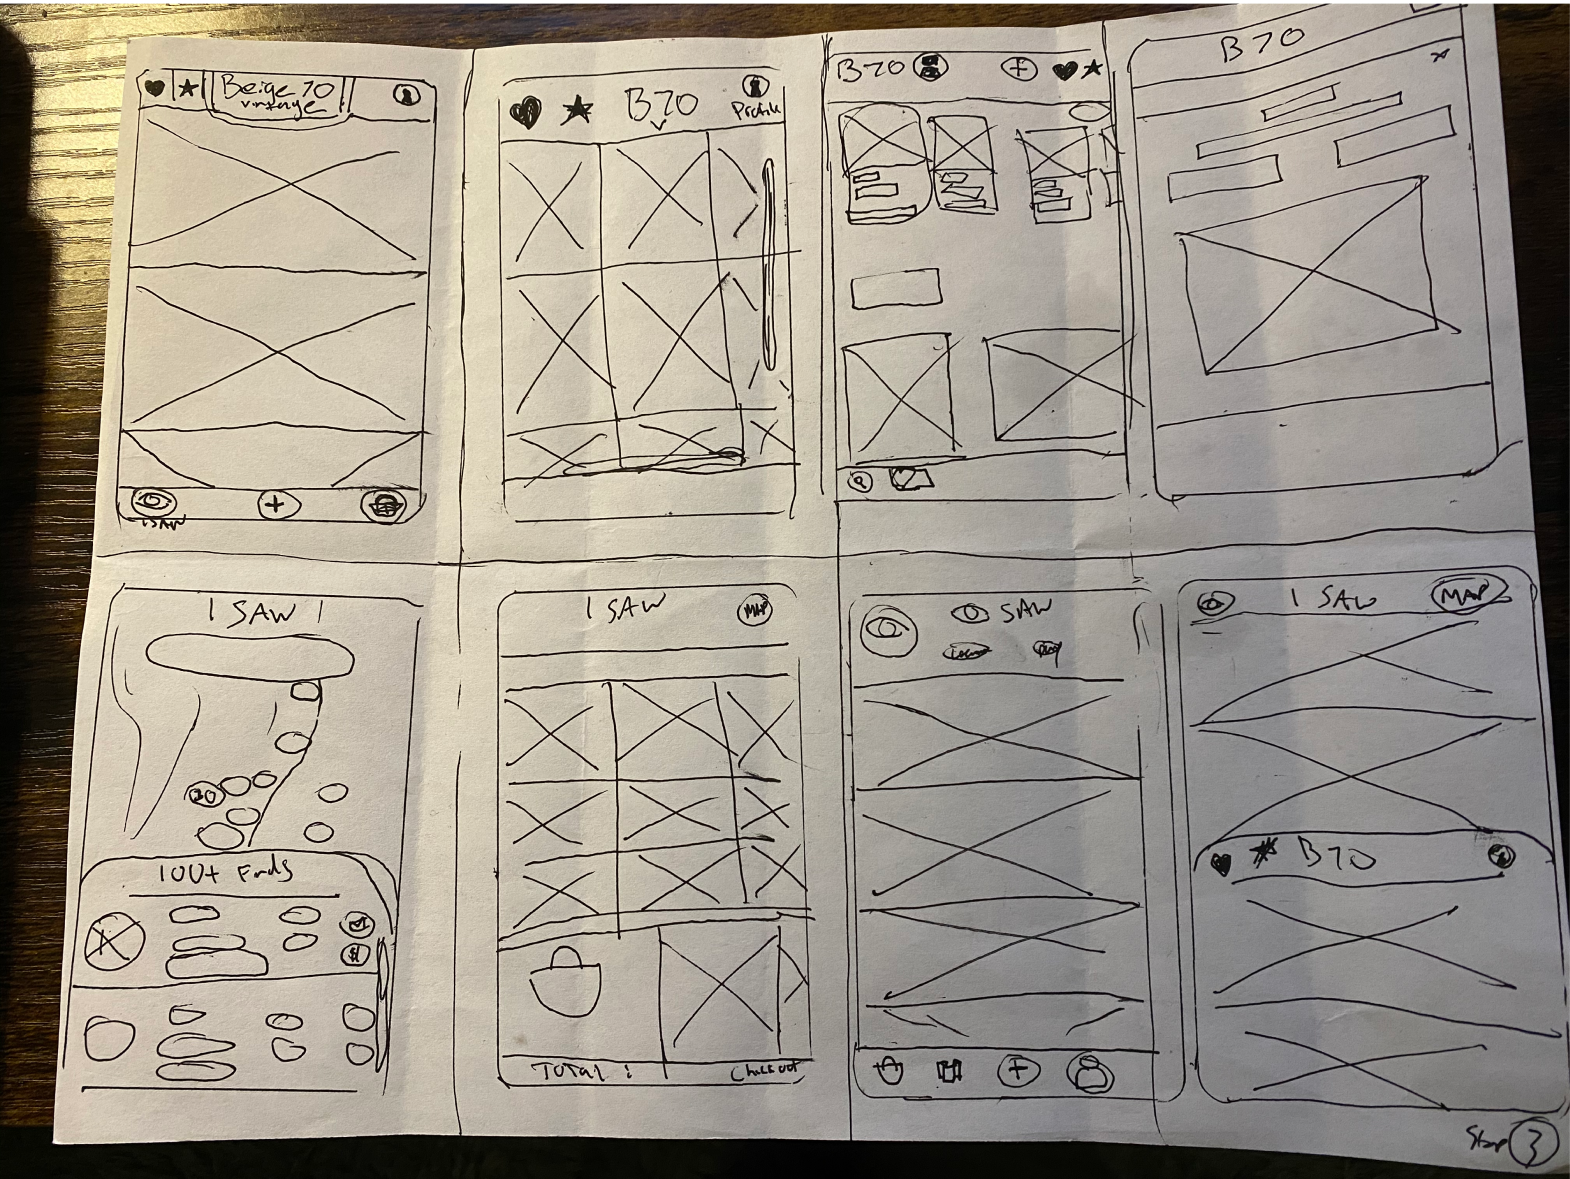 Beige 70
vintage
I SAW
B70
Profile
B70
B70
I SAW
20
100+ Finds
$
I SAW
MAP
TOTAL :
Checkout
SAW
I SAW
MAP
B70
Step 3